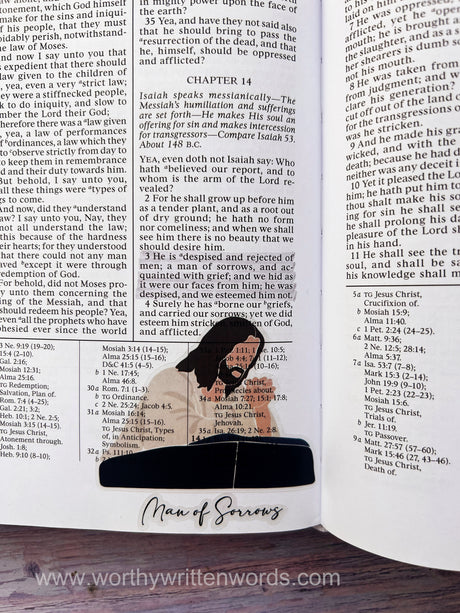 which God himself
make for the sins and iniqui-
of his people, that they must
oidably perish, notwithstand-
the law of Moses.
nd now I say unto you that
s expedient that there should
law given to the children of
, yea, even a very astrict law;
ey were a stiffnecked people,
k to do iniquity, and slow to
mber the Lord their God;
erefore there was a alaw given
, yea, a law of performances
f bordinances, a law which they
o cobserve strictly from day to
to keep them in remembrance
d and their duty towards him.
But behold, I say unto you,
all these things were atypes of
gs to come.
And now, did they aunderstand
w? I say unto you, Nay, they
not all understand the law;
this because of the hardness
heir hearts; for they understood
that there could not any man
aved bexcept it were through
redemption of God.
For behold, did not Moses pro-
y unto them concerning the
ing of the Messiah, and that
should redeem his people? Yea,
even aall the prophets who have
phesied ever since the world
in mighty power upon the face of
the earth?
35 Yea, and have they not said also
that he should bring to pass the
aresurrection of the dead, and that
he, himself, should be oppressed
and afflicted?
CHAPTER 14
Isaiah speaks messianically—The
Messiah's humiliation and sufferings
are set forth—He makes His soul an
offering for sin and makes intercession
for transgressors—Compare Isaiah 53.
About 148 B.C.
YEA, even doth not Isaiah say: Who
hath abelieved our report, and to
whom is the arm of the Lord re-
vealed?
2 For he shall grow up before him
as a tender plant, and as a root out
of dry ground; he hath no form
nor comeliness; and when we shall
see him there is no beauty that we
should desire him.
3 He is adespised and rejected of
men; a man of sorrows, and ac-
quainted with grief; and we hid as
it were our faces from him; he was
despised, and we esteemed him not.
4 Surely he has aborne our bgriefs,
and carried our sorrows; yet we did
esteem him stricken, smitten of God,
and afflicted.
7 He was oppressed,
afflicted, yet he
mouth; he is brought a
the slaughter, and as a s
her shearers is dumb so
not his mouth.
8 He was taken from
from judgment; and w
clare his generation?
cut off out of the land o
for the transgressions o
was he stricken.
9 And he made his gra
wicked, and with the
death; because he had d
neither was any deceit i
10 Yet it pleased the Lo
him; he hath put him to
thou shalt make his so
ing for sin he shall se
he shall prolong his da
pleasure of the Lord sh
in his hand.
11 He shall see the tr
soul, and shall be
his knowledge shall m
3 Ne. 9:19 (19–20);
15:4 (2–10).
Gal. 2:16;
Mosiah 12:31;
Alma 25:16.
TG Redemption;
Salvation, Plan of.
Rom. 7:4 (4–25);
Gal. 2:21; 3:2;
Heb. 10:1; 2 Ne. 2:5;
Mosiah 3:15 (14–15).
TG Jesus Christ,
Atonement through.
Josh. 1:8;
Heb. 9:10 (8–10);
Mosiah 3:14 (14–15);
Alma 25:15 (15–16);
D&C 41:5 (4–5).
b 1 Ne. 17:45;
Alma 46:8.
30a Rom. 7:1 (1–3).
b TG Ordinance.
c 2 Ne. 25:24; Jacob 4:5.
31a Mosiah 16:14;
Alma 25:15 (15–16).
TG Jesus Christ, Types
of, in Anticipation;
Symbolism.
32a Ps. 111:10
1 Ne. 10:5;
TG Jesus Christ,
Prophecies about.
34a Mosiah 7:27; 15:1
Alma 10:21.
TG Jesus Christ,
Jehovah.
35a Isa. 26:19; 2 Ne. 2:8.
5a TG Jesus Christ,
Crucifixion of.
b Mosiah 15:9;
Alma 11:40.
c 1 Pet. 2:24 (24–25).
6a Matt. 9:36;
2 Ne. 12:5; 28:14;
Alma 5:37.
7a Isa. 53:7 (7–8);
Mark 15:3 (2–14);
John 19:9 (9–10);
1 Pet. 2:23 (22–23);
Mosiah 15:6.
TG Jesus Christ,
Trials of.
b Jer. 11:19.
TG Passover.
9a Matt. 27:57 (57–60);
Mark 15:46 (27, 43–46).
TG Jesus Christ,
Death of.
Man of Sorrows
www.worthywrittenwords.com